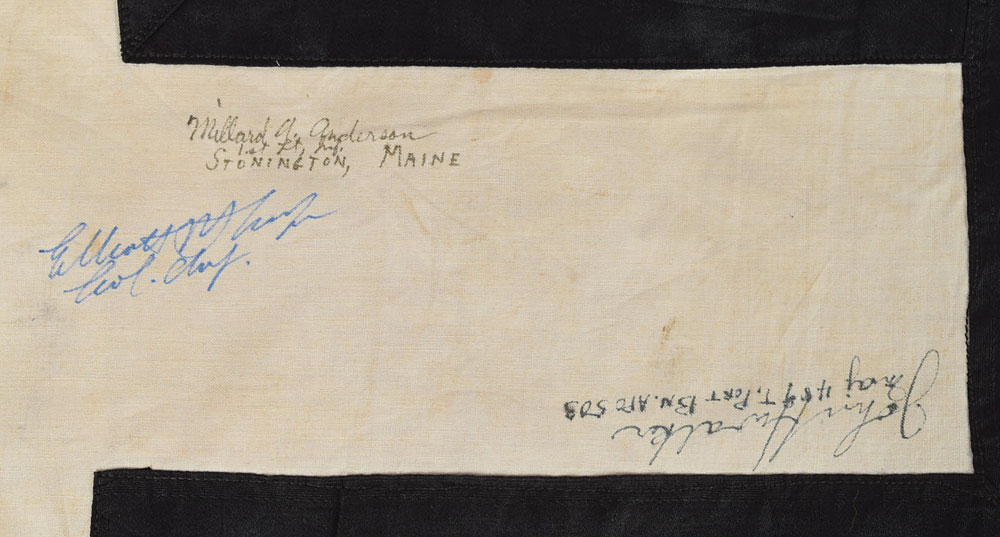 Millard A. Anderson
1st Lt, Inf.
STONINGTON, MAINE
Elliott
Col. Inf.
John H Walker
Maj 489 T. PORT BN. APO 503